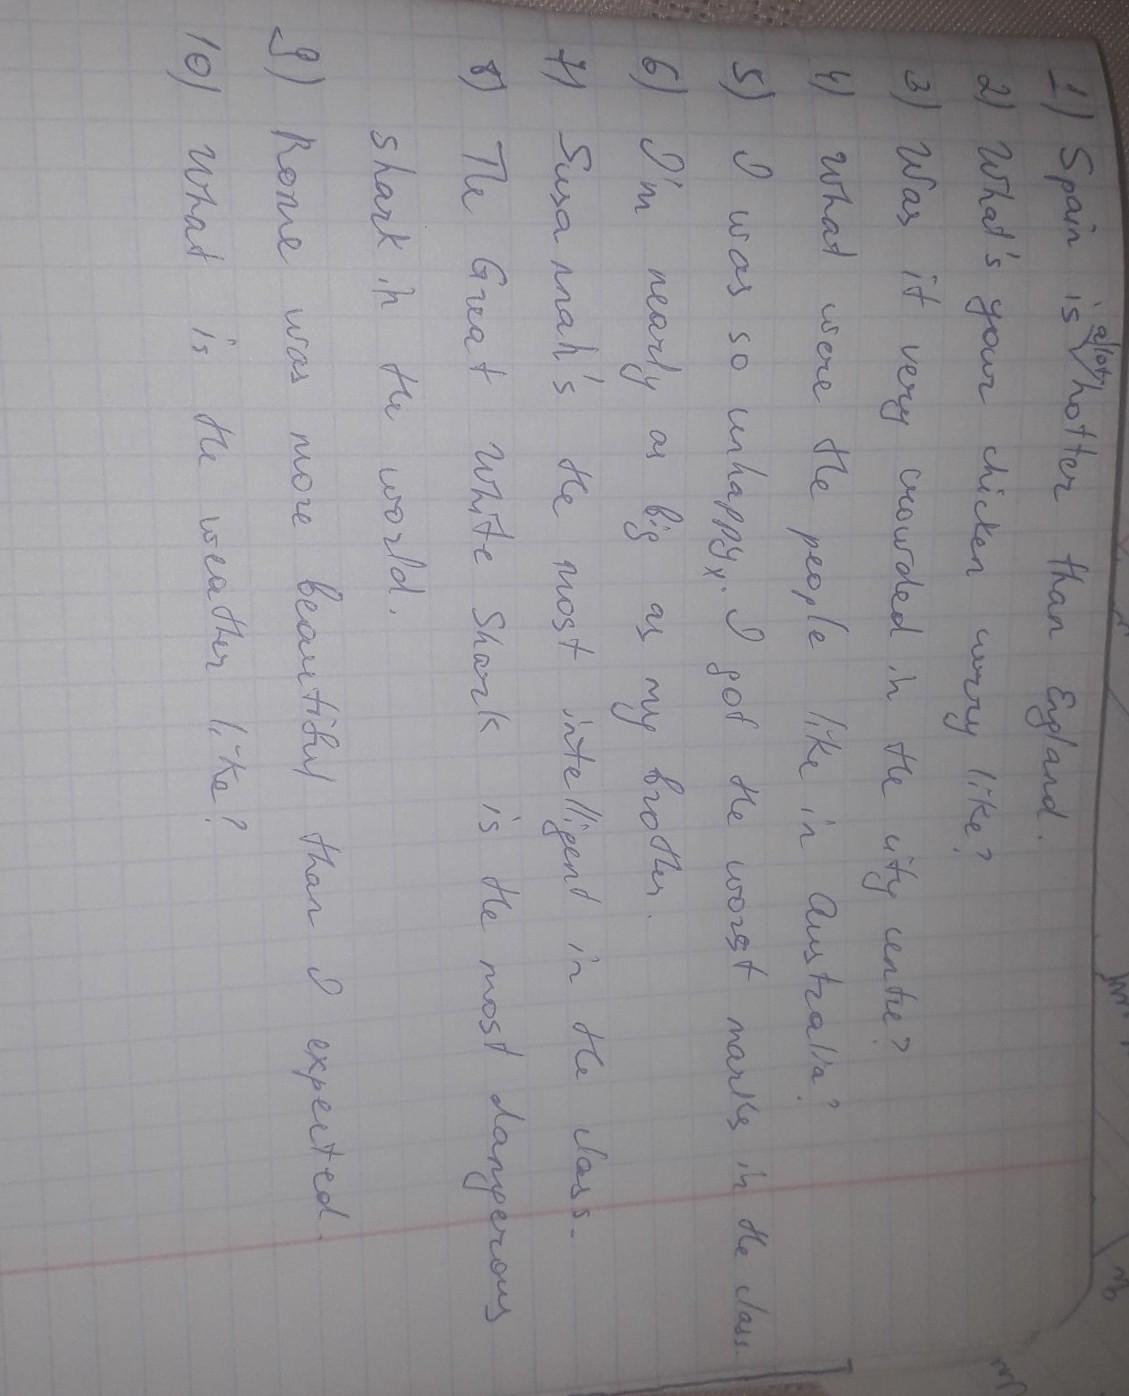 1) Spain is a lot hotter than England.
2) What's your chicken curry like?
3) Was it very crowded in the city centre?
4) What were the people like in Australia?
5) I was so unhappy. I got the worst marks in the class.
6) I'm nearly as big as my brother.
7) Susannah's the most intelligent in the class.
8) The Great White Shark is the most dangerous
shark in the world.
9) Rome was more beautiful than I expected.
10) What is the weather like?